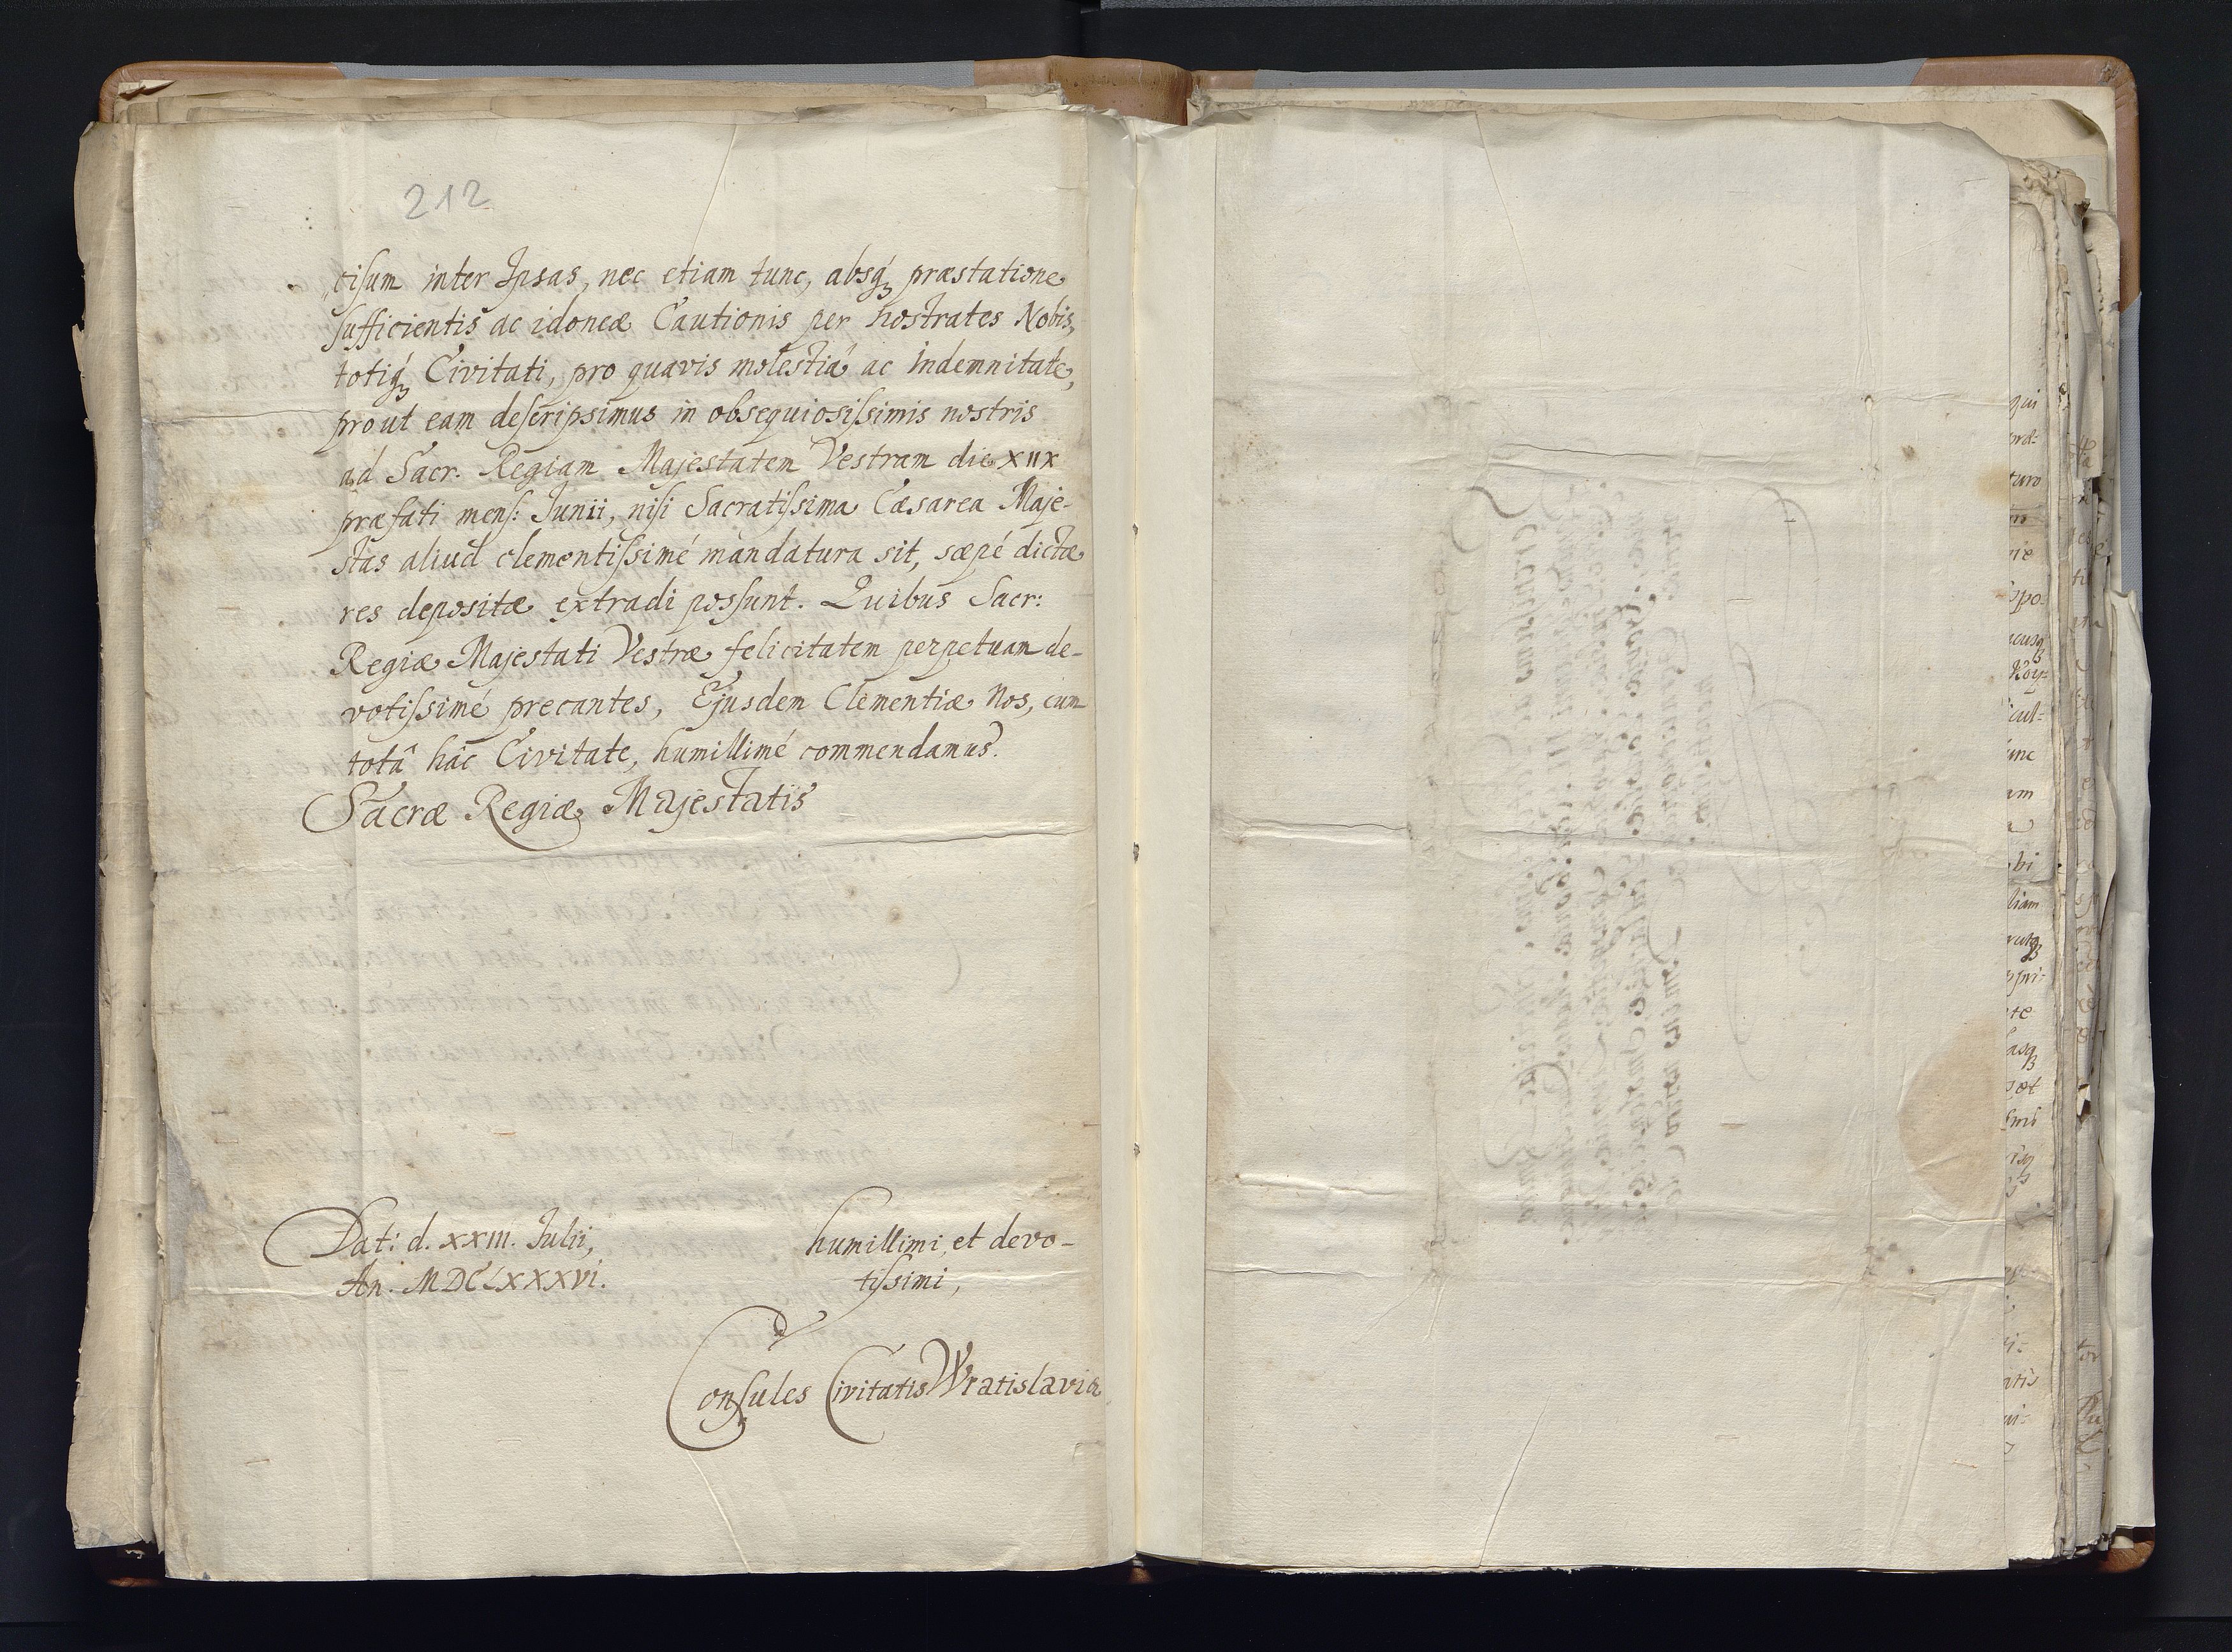 212
cisum inter Ipsas, nec etiam tunc, absq́ꝫ præstatione
sufficientis ac idoneæ Cautionis per Nostrates Nobis,
totiq́ꝫ Civitati, pro quavis molestiâ ac Indemnitate,
prout eam descripsimus in obsequiosissimis nostris
ad Sacr. Regiam Majestatem Vestram die XIIX
præfati mens: Junii, nisi Sacratissima Cæsarea Maje-
stas aliud clementissimé mandatura sit, sæpé dictæ
res depositæ extradi possunt. Quibus Sacr:
Regiæ Majestati Vestræ felicitatem perpetuam de-
votissimé precantes, Ejusdem Clementiæ Nos, cum
totâ hâc Civitate, humillimé commendamus.
Sacræ Regiæ Majestatis
Dat: d. XXIII. Julii,
An. MDCLXXXVI.
humillimi et devo-
tissimi,
Consules Civitatis Wratislaviæ